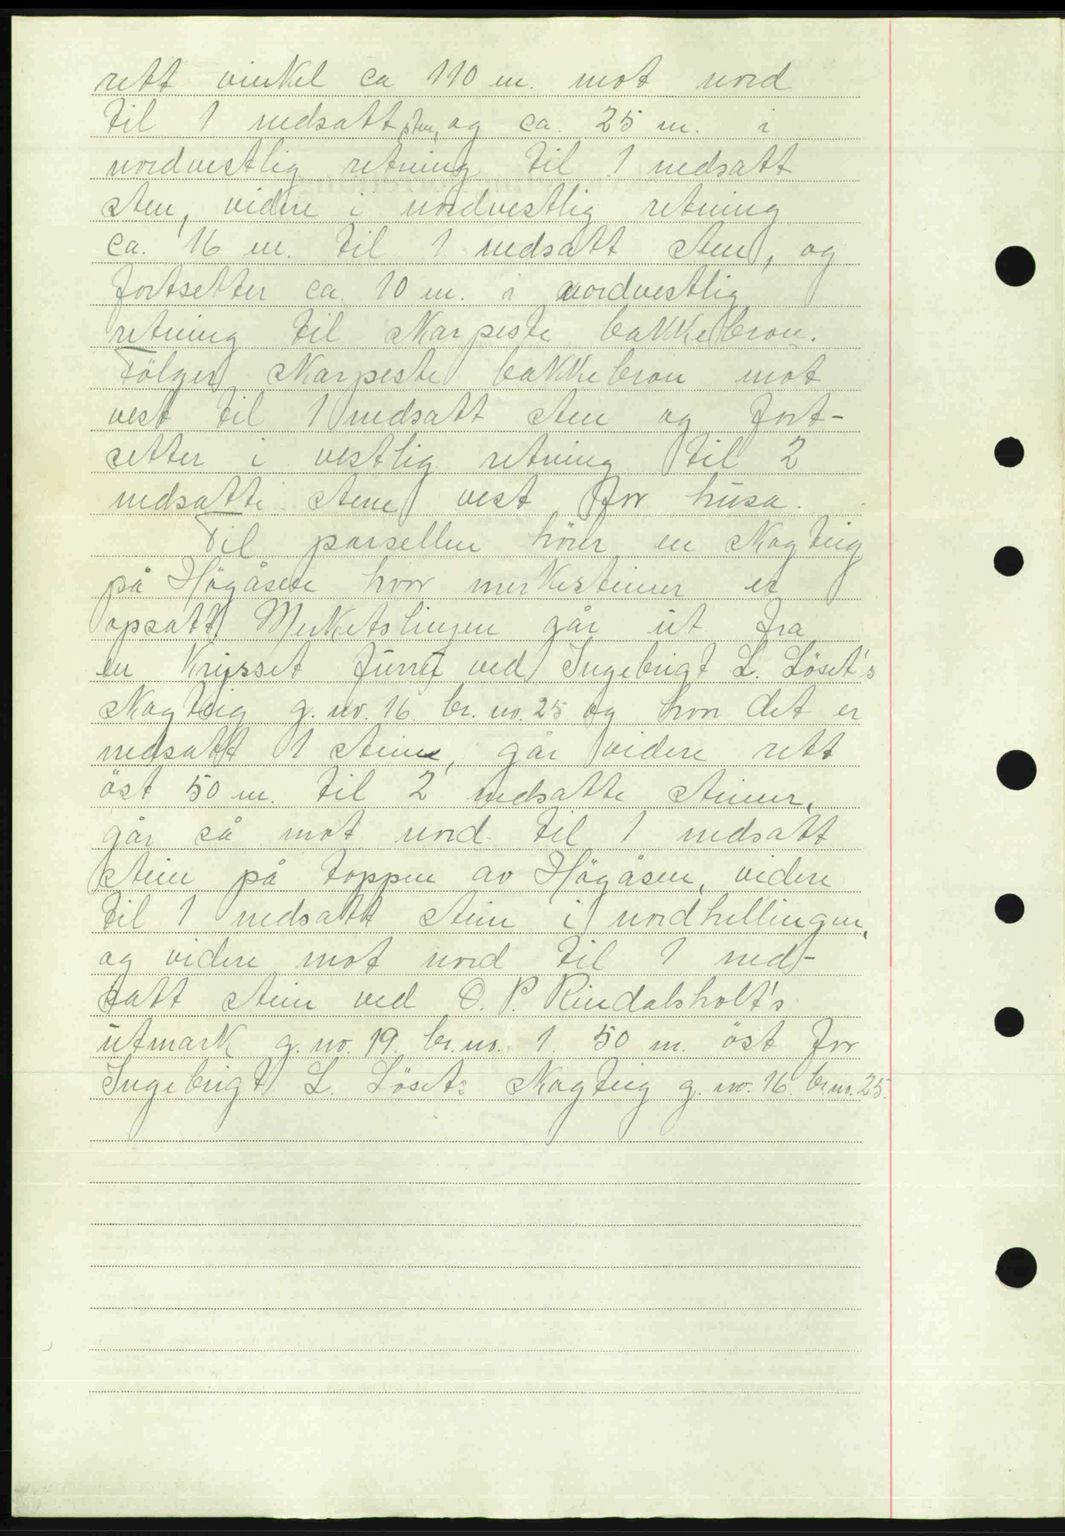 rett vinkel ca 110 m. mot nord
til 1 nedsatt sten, og ca. 25 m. i
nordvestlig retning til 1 nedsatt
sten, videre i nordvestlig retning
ca. 16 m. til 1 nedsatt sten, og
fortsetter ca. 10 m. i nordvestlig
retning til skarpeste bakkebron.
Følger skarpeste bakkebron mot
vest til 1 nedsatt sten og fort-
setter i vestlig retning til 2
nedsatte stene vest for husa.
Til parsellen hörer en skogteig
på Högåsen hvor merkesteiner er
opsatt. Merketslinjen går ut fra
en krysset furu ved Ingebrigt L. Löset's
skogteig g. nr. 16 br. nr. 25 og hvor det er
nedsatt 1 stein, går videre rett
öst 50 m. til 2 nedsatte steiner,
går så mot nord til 1 nedsatt
stein på toppen av Högåsen, videre
til 1 nedsatt stein i nordhellingen,
og videre mot nord til 1 ned-
satt stein ved O. P. Rindalsholt's
utmark g. no. 19 br. no. 1. 50 m. öst for
Ingebrigt L. Löset's skogteig g. no. 16. br. nr. 25.